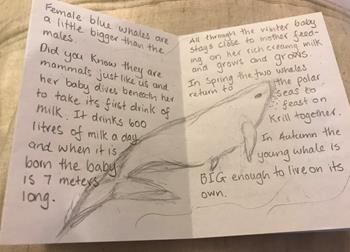 Female blue whales are
a little bigger than the
males.
Did you know they are
mammals just like us and
her baby dives beneath her
to take its first drink of
milk. It drinks 600
litres of milk a day
and when it is
born the baby
is 7 meters
long.
All through the winter baby
stays close to mother feed-
ing on her rich creamy milk
and grows and grows.
In Spring the two whales
return to the polar
seas to
feast on
Krill together.
In Autumn the
young whale is
BIG enough to live on its
own.